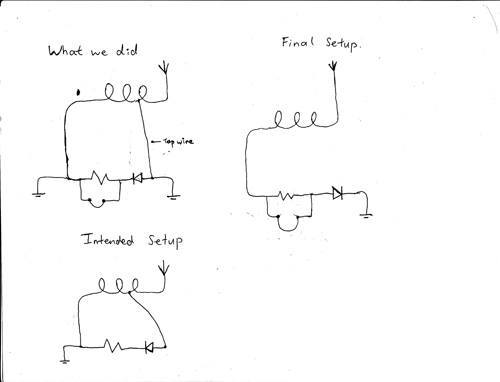 What we did
Final Setup.
Tap wire
Intended Setup